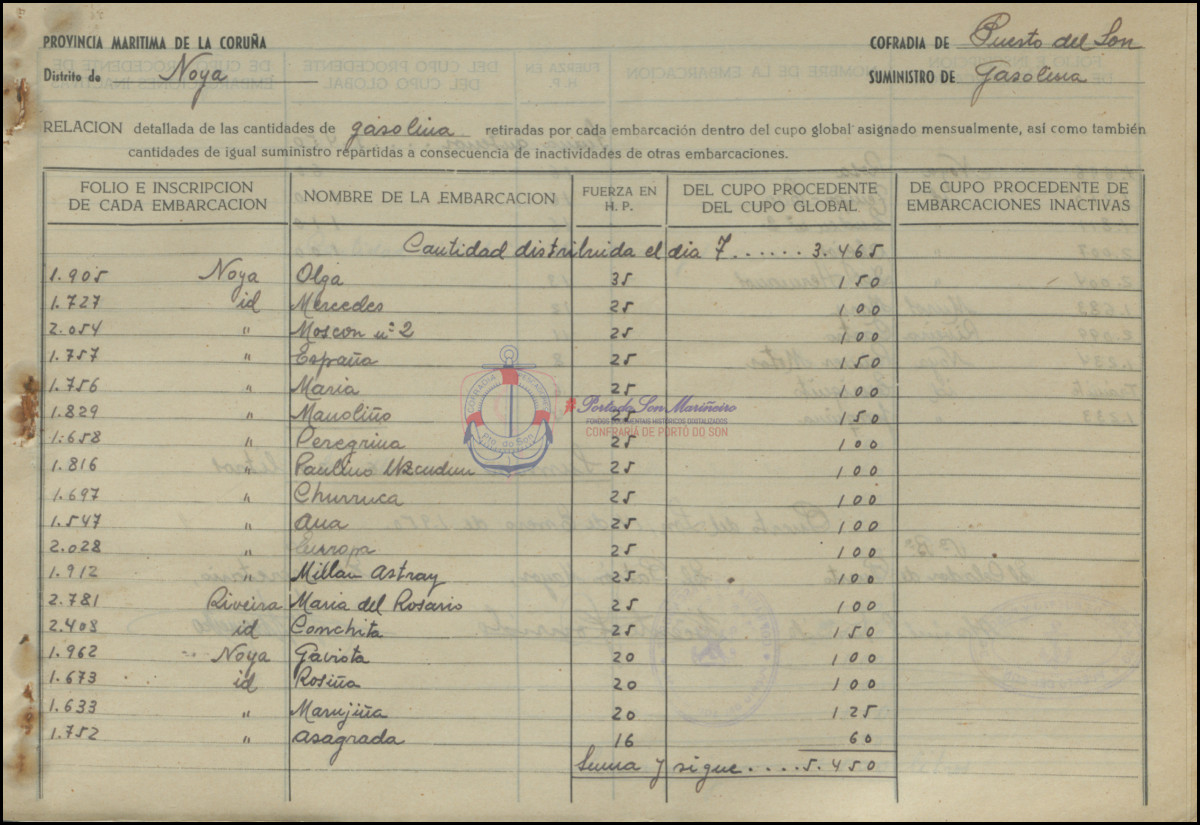 PROVINCIA MARITIMA DE LA CORUÑA
COFRADIA DE Puerto del Son
Distrito de Noya
SUMINISTRO DE Gasolina
RELACION detallada de las cantidades de gasolina retiradas por cada embarcación dentro del cupo global asignado mensualmente, así como también
cantidades de igual suministro repartidas a consecuencia de inactividades de otras embarcaciones.
FOLIO E INSCRIPCION DE CADA EMBARCACION
NOMBRE DE LA EMBARCACION
FUERZA EN H. P.
DEL CUPO PROCEDENTE DEL CUPO GLOBAL
DE CUPO PROCEDENTE DE EMBARCACIONES INACTIVAS
Cantidad distribuida el dia 7...... 3.465
1.905 Noya Olga 35 150
1.727 id Mercedes 25 100
2.054 " Moscon nº 2 25 100
1.757 " España 25 150
1.756 " Maria 25 100
1.829 " Manoliño 25 150
1.658 " Peregrina 25 100
1.816 " Paulino Uzcudun 25 100
1.697 " Churruca 25 100
1.547 " Ana 25 100
2.028 " Europa 25 100
1.912 " Millan Astray 25 100
2.781 Riveira Maria del Rosario 25 100
2.408 id Conchita 25 150
1.962 Noya Gaviota 20 100
1.673 id Rosiña 20 100
1.633 " Marujiña 20 125
1.752 " Asagrada 16 60
Suma y sigue.... 5.450
COFRADIA PESCADORES
Pto. do Son
Portodo Son Mariñeiro
FONDOS DOCUMENTAIS HISTÓRICOS DIXITALIZADOS
CONFRARÍA DE PORTO DO SON